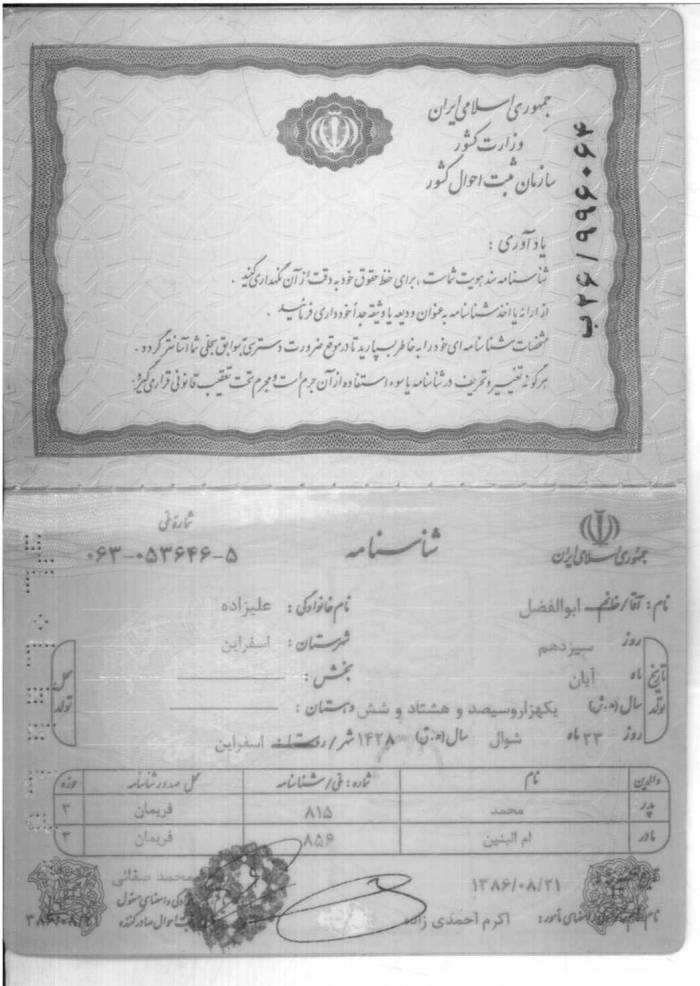 جمهوری اسلامی ایران
وزارت کشور
سازمان ثبت احوال کشور
ب۲۶/۹۹۶۰۶۴
یادآوری :
شناسنامه سند هویت شماست ، برای حفظ حقوق خود به دقت از آن نگهداری کنید .
از ارائه یا اخذ شناسنامه به عنوان ودیعه یا وثیقه جداً خودداری فرمائید .
مشخصات شناسنامه ای خود را به خاطر بسپارید تا در موقع ضرورت دسترسی به سوابق سجلی شما آسانتر گردد .
هرگونه تغییر و تحریف در شناسنامه یا سوء استفاده از آن جرم است و مجرم تحت تعقیب قانونی قرار می گیرد.
جمهوری اسلامی ایران
شناسنامه
شماره ملی
۰۶۳-۰۵۳۶۴۶-۵
نام : آقا/خانم ابوالفضل نام خانوادگی : علیزاده
تاریخ تولد روز سیزدهم شهرستان : اسفراین محل تولد
ماه آبان بخش :
سال (ه.ش) یکهزاروسیصد و هشتاد و شش دهستان :
روز ۲۳ ماه شوال سال (ه.ق) ۱۴۲۸ شهر/روستا : اسفراین
والدین نام شماره : ملی/شناسنامه محل صدور شناسنامه حوزه
پدر محمد ۸۱۵ فریمان ۳
مادر ام البنین ۸۵۶ فریمان ۳
۱۳۸۶/۰۸/۲۱ محمد صفائی
امضای مأمور : اکرم احمدی زاده
و امضای مسئول
احوال صادرکننده